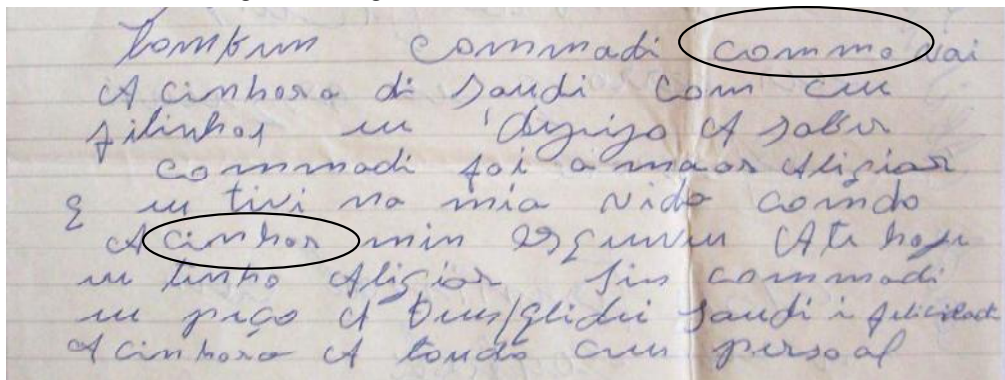 tombem commadi commo vai
A cinhora di Saudi com ceu
filinhos eu desijo A saber
commadi foi a maor Aligiar
E eu tivi na mia vida comdo
A cinhor min escreveu Ate hoje
eu tenho Aligiar commadi
eu peço A Deus Saudi i felicidad
A cinhora A toudo ceus persoal